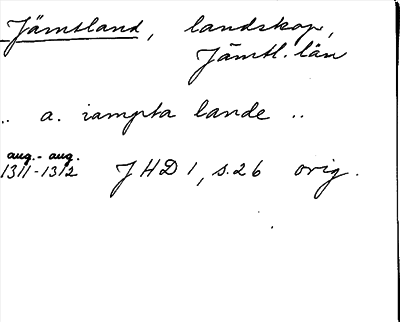 Jämtland, landskap,
Jämtl. län
.. a. iampta lande ..
aug.- aug.
1311-1312 JHD 1, s.26 orig.